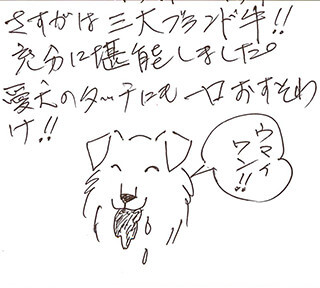 さすがは三大ブランド牛!!
充分に堪能しました。
愛犬のタッチにも一口おすそわ
け!!
ウマイ
ワン!!